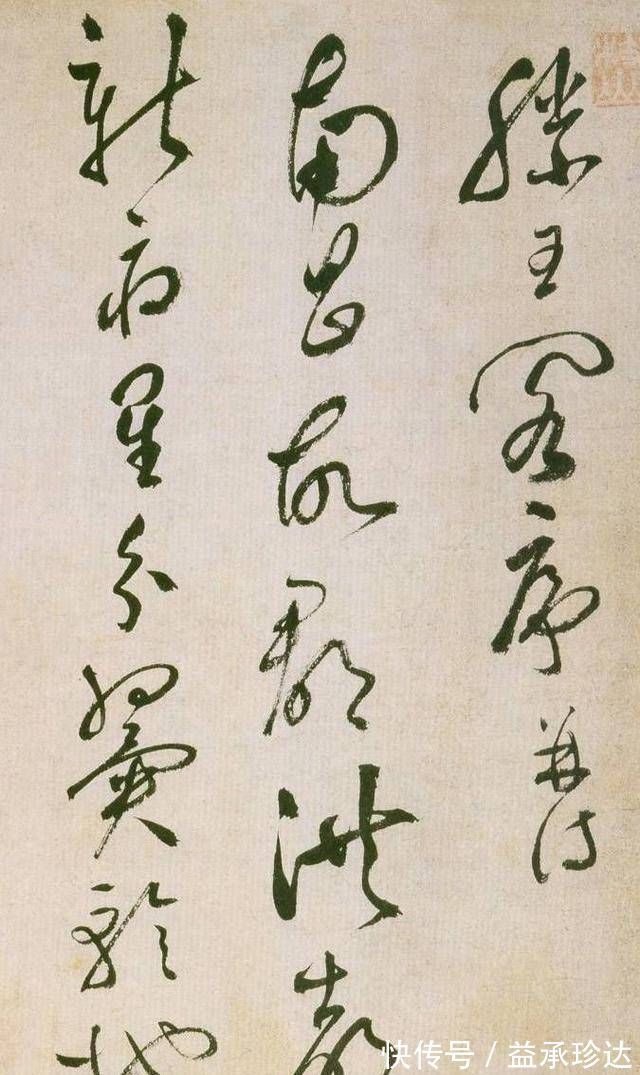 滕王閣序并詩
南昌故郡洪都
新府星分翼軫地
快传号 / 益承珍达